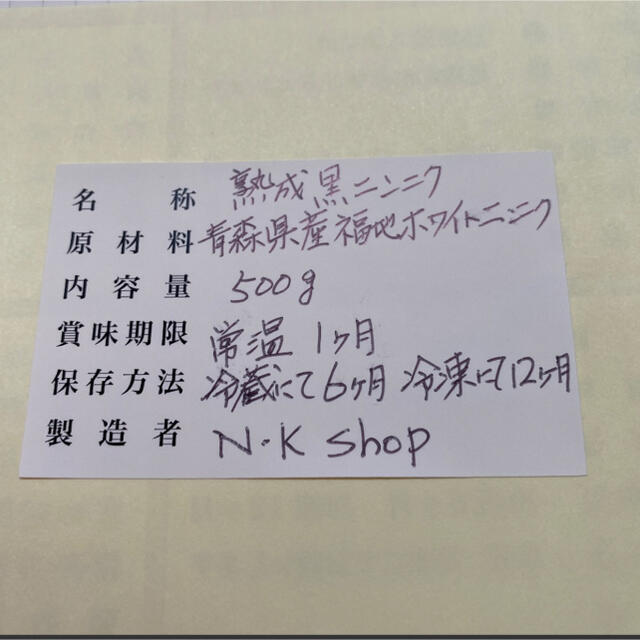 名称 熟成黒ニンニク
原材料 青森県産福地ホワイトニンニク
内容量 500g
賞味期限 常温 1ヶ月
保存方法 冷蔵にて6ヶ月 冷凍にて12ヶ月
製造者 N・K shop